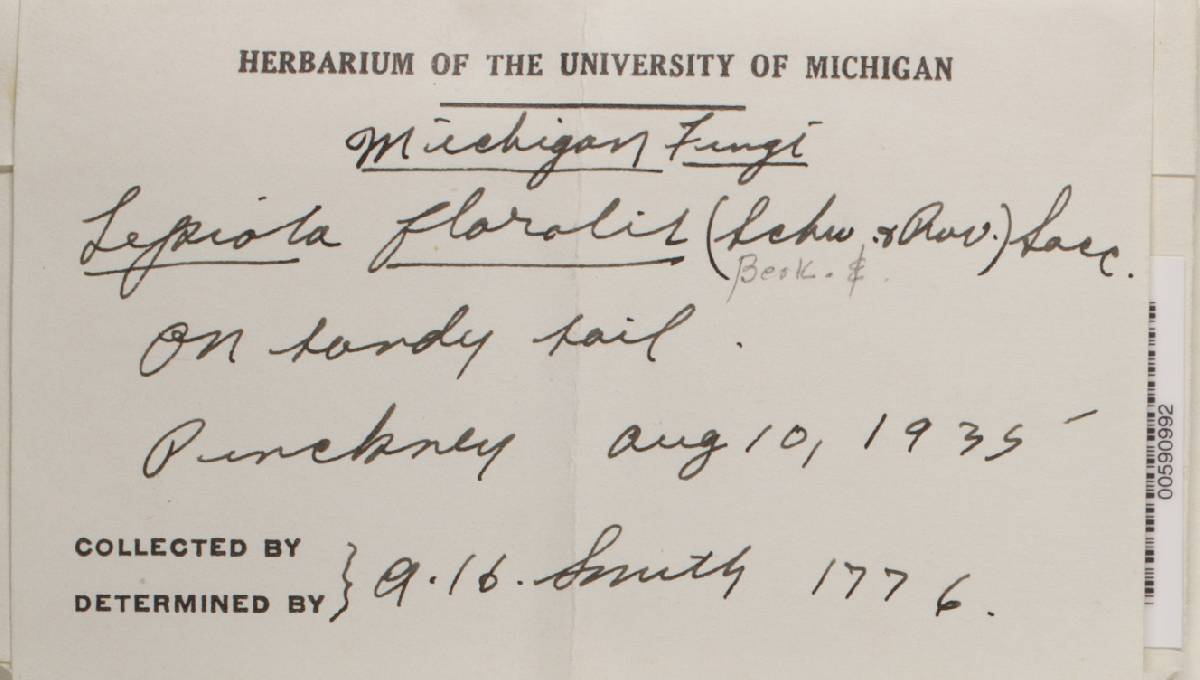 HERBARIUM OF THE UNIVERSITY OF MICHIGAN
Michigan Fungi
Lepiota floralis (Schw. & Rav.) Sacc.
Berk. &
On sandy soil.
Pinckney Aug 10, 1935
COLLECTED BY
DETERMINED BY } A. H. Smith 1776.
00590992